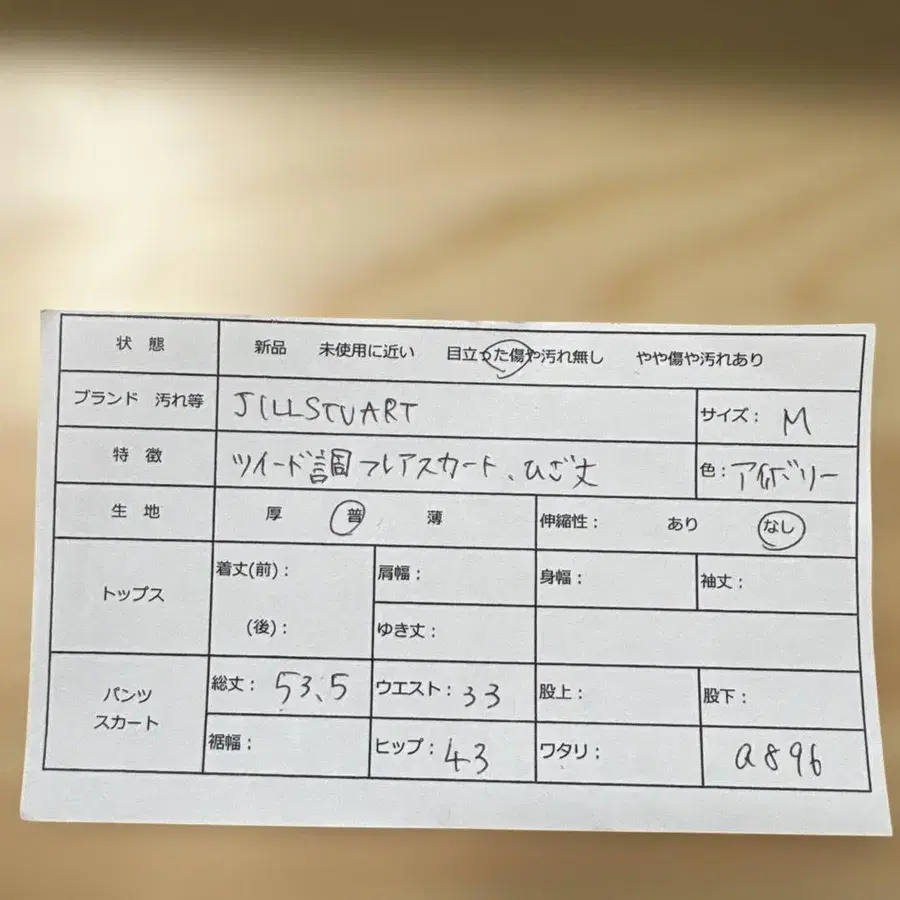 状態 新品 未使用に近い 目立った傷や汚れ無し やや傷や汚れあり
ブランド 汚れ等 JILLSTUART サイズ： M
特徴 ツイード調フレアスカート、ひざ丈 色：アイボリー
生地 厚 普 薄 伸縮性： あり なし
トップス 着丈(前)： 肩幅： 身幅： 袖丈：
(後)： ゆき丈：
パンツ スカート 総丈： 53.5 ウエスト： 33 股上： 股下：
裾幅： ヒップ： 43 ワタリ： a896